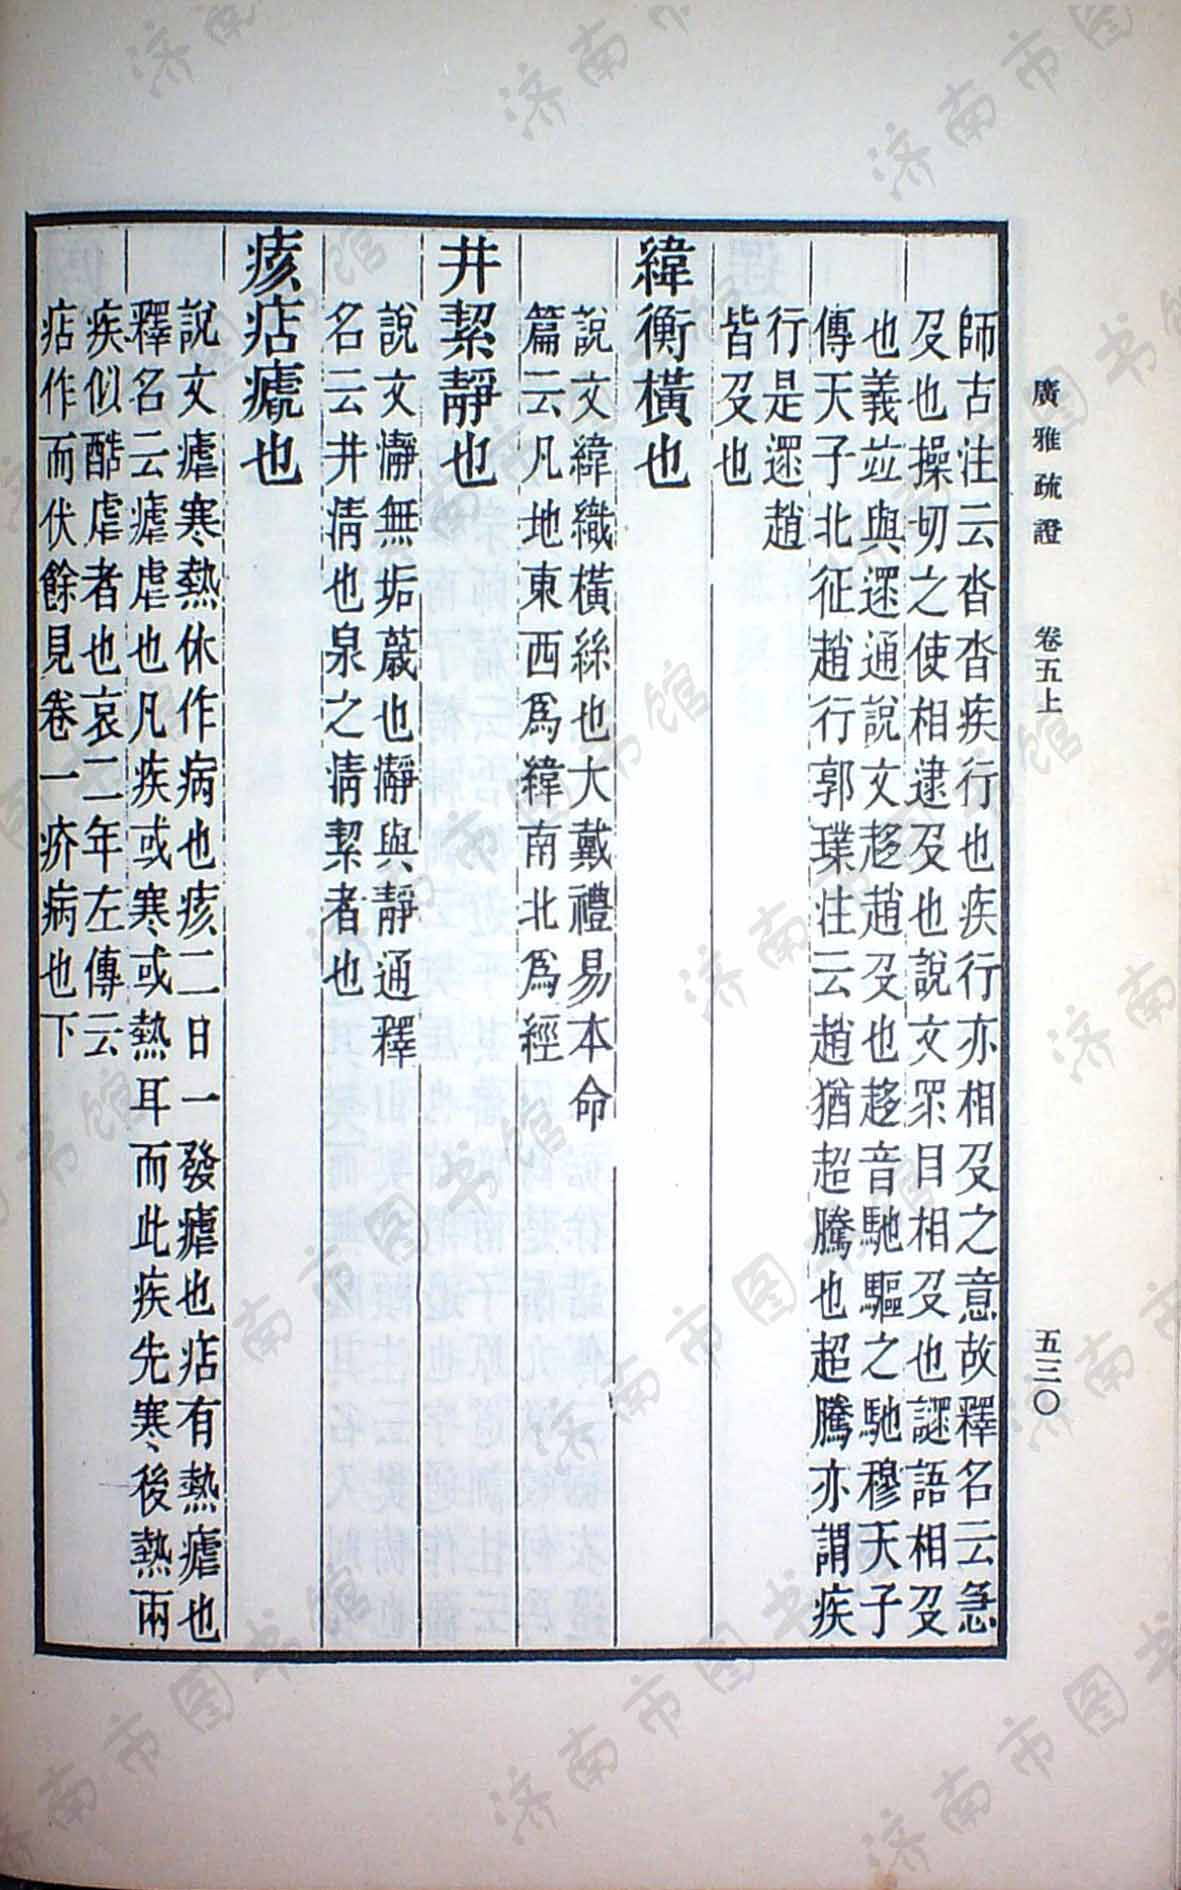 廣雅疏證　卷五上　五三〇
師古注云沓沓疾行也疾行亦相及之意故釋名云急
及也操切之使相逮及也說文眔目相及也謎語相及
也義竝與遝通說文趍趙及也趍音馳驅之馳穆天子
傳天子北征趙行郭璞注云趙猶超騰也超騰亦謂疾
行是遝趙
皆及也
緯衡橫也
說文緯織橫絲也大戴禮易本命
篇云凡地東西爲緯南北爲經
井絜靜也
說文瀞無垢薉也瀞與靜通釋
名云井清也泉之清絜者也
痎痁瘧也
說文瘧寒熱休作病也痎二日一發瘧也痁有熱瘧也
釋名云瘧虐也凡疾或寒或熱耳而此疾先寒後熱兩
疾似酷虐者也哀二年左傳云
痁作而伏餘見卷一疥病也下
济南市图书馆